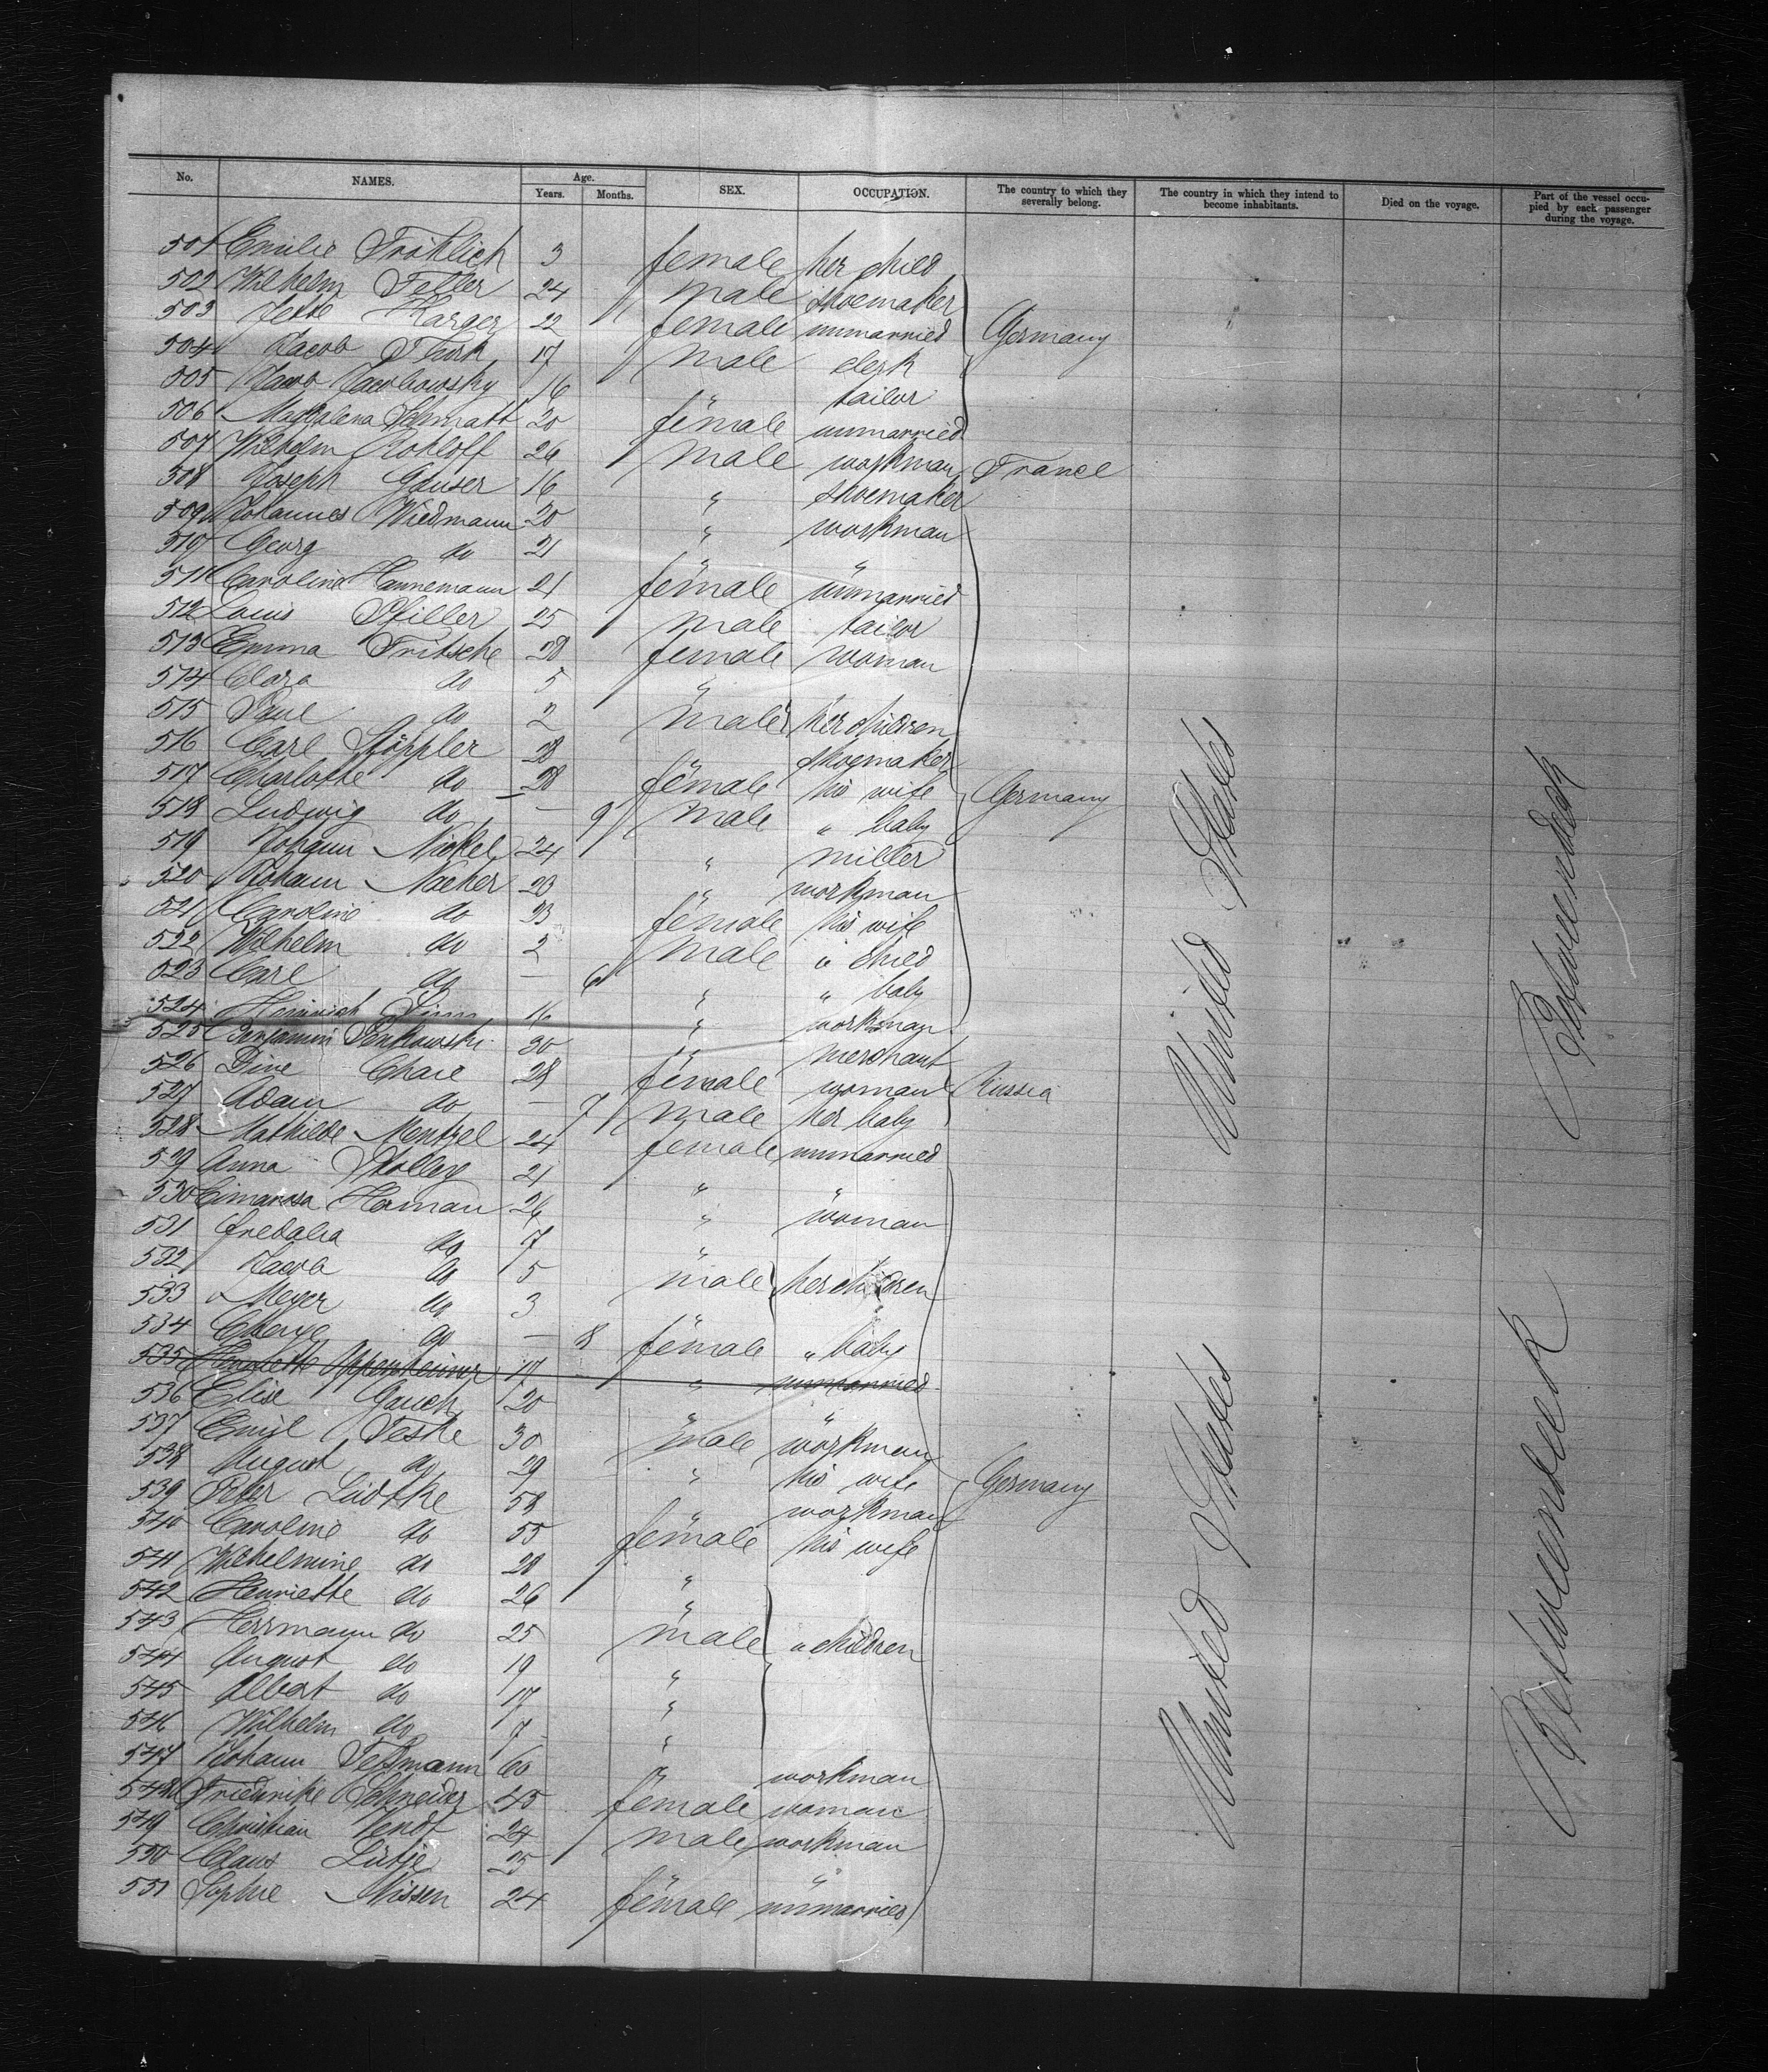 No. NAMES. Age. Years. Months. SEX. OCCUPATION. The country to which they severally belong. The country in which they intend to become inhabitants. Died on the voyage. Part of the vessel occupied by each passenger during the voyage.
501 Emilie Fröhlich 3 female her child
502 Wilhelm Feller 24 male shoemaker
503 Jette Karger 22 female unmarried Germany
504 Jacob Thork 17 male clerk
505 Jacob Jacobowsky 16 " tailor
506 Magdalena 20 female unmarried
507 Wilhelm Rohloff 26 male workman France
508 Joseph Gauser 16 " shoemaker
509 Johannes Wiedmann 20 " workman
510 Georg do 21 " "
511 Caroline Hannemann 21 female unmarried
512 Louis Pfiller 25 male tailor
513 Emma Fritsche 28 female woman
514 Clara do 5 "
515 Paul do 2 male her children
516 Carl Stöppler 28 " shoemaker
517 Charlotte do 28 female his wife Germany
518 Ludwig do — 9 male " baby
519 Johann Nickel 24 " miller
520 Johann Nacker 23 " workman
521 Caroline do 23 female his wife
522 Wilhelm do 2 male " child
523 Carl do — 6 " " baby
524 Heinrich Simm 16 " workman
525 Benjamin Penkowski 30 " merchant
526 Dine Chaie 28 female woman Russia
527 Adam do — 7 male her baby
528 Mathilde Mentzel 24 female unmarried
529 Anna Stolley 21 " "
530 Cimarosa Herman 26 " woman
531 Fredalia do 7 "
532 Jacob do 5 male her children
533 Meyer do 3 "
534 do — 8 female " baby
535 Henriette Oppenheimer 17 " unmarried
536 Elise Gauch 20 " "
537 Emil Teske 30 male workman
538 August do 29 " his wife Germany
539 Peter Lüdtke 58 " workman
540 Caroline do 55 female his wife
541 Wilhelmine do 28 "
542 Henriette do 26 "
543 Herrmann do 25 male " children
544 August do 19 "
545 Albert do 17 "
546 Wilhelm do 7 "
547 Johann Tessmann 60 " workman
548 Friedrike Schneider 45 female woman
549 Christian Wendt 24 male workman
550 Claus Lütje 25 " "
551 Sophie Nissen 24 female unmarried
United States
United States
Betweendeck
Betweendeck